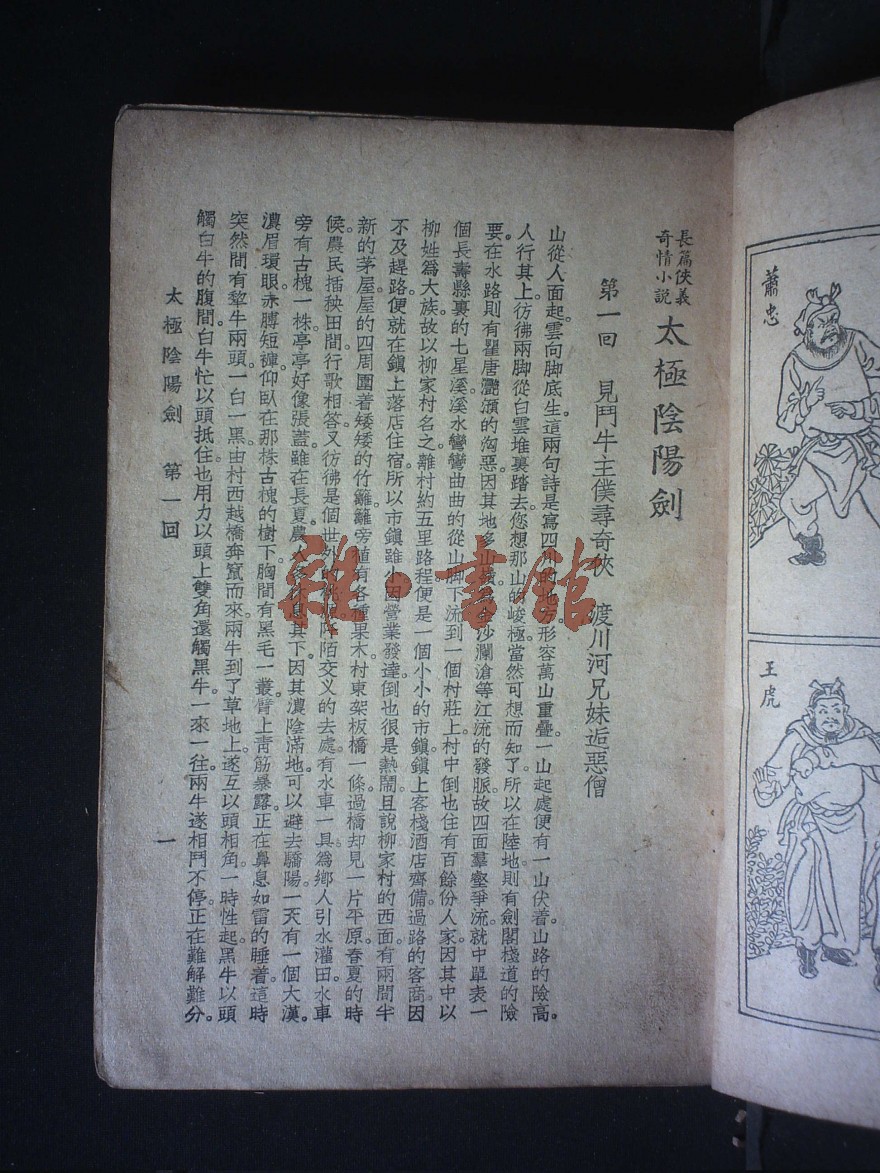 長篇俠義
奇情小説
太極陰陽劍
第一回　見鬥牛主僕尋奇俠　渡川河兄妹逅惡僧
山從人面起。雲向脚底生。這兩句詩是寫四川的地方形容萬山重疊。一山起處便有一山伏着。山路的險高。
人行其上彷彿兩脚從白雲堆裏踏去。您想那山的峻極當然可想而知了。所以在陸地則有劍閣棧道的險
要。在水路則有瞿唐灧澦的汹惡。因其地多山嶺金沙瀾滄等江流的發脈故四面羣壑爭流。就中單表一
個長壽縣裏的七星溪。溪水彎彎曲曲的從山脚下流到一個村莊上。村中倒也住有百餘份人家。因其中以
柳姓爲大族。故以柳家村名之。離村約五里路程便是一個小小的市鎭。鎭上客棧酒店齊備。過路的客商因
不及趕路便就在鎭上落店住宿。所以市鎭雖小。因營業發達倒也很是熱鬧。且說柳家村的西面。有兩間半
新的茅屋。屋的四周圍着矮矮的竹籬。籬旁植有各種果木。村東架板橋一條。過橋却見一片平原。春夏的時
候。農民插秧田間。行歌相答。又彷彿是個世外的桃源。阡陌交义的去處。有水車一具。爲鄉人引水灌田。水車
旁有古槐一株。亭亭好像張蓋。雖在長夏農人多休息其下。因其濃陰滿地。可以避去驕陽。一天有一個大漢。
濃眉環眼。赤膊短褲。仰臥在那株古槐的樹下。胸間有黑毛一叢。臂上靑筋暴露。正在鼻息如雷的睡着。這時
突然間有犂牛兩頭。一白一黑。由村西越橋奔竄而來。兩牛到了草地上。遂互以頭相角。一時性起。黑牛以頭
觸白牛的腹間。白牛忙以頭抵住。也用力以頭上雙角還觸黑牛。一來一往。兩牛遂相鬥不停。正在難解難分。
太極陰陽劍　第一回
一
蕭忠
王虎
雜·書館